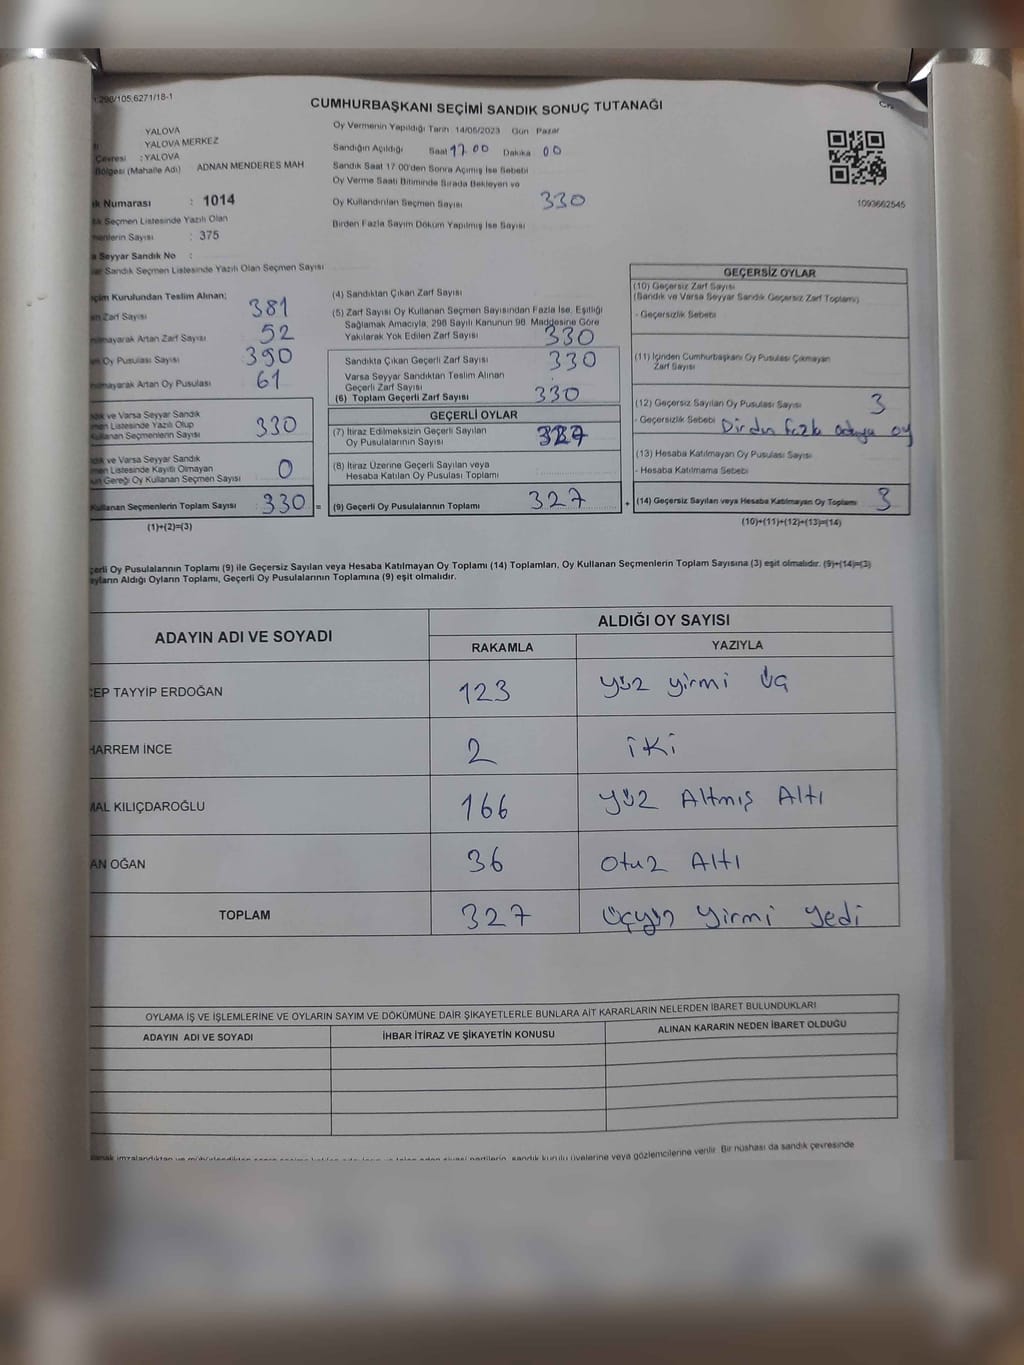 298/105.6271/18-1
CUMHURBAŞKANI SEÇİMİ SANDIK SONUÇ TUTANAĞI
YALOVA
YALOVA MERKEZ
Çevresi : YALOVA
Bölgesi (Mahalle Adı) ADNAN MENDERES MAH
Oy Vermenin Yapıldığı Tarih 14/05/2023 Gün Pazar
Sandığın Açıldığı Saat 17 00 Dakika 00
Sandık Saat 17:00'den Sonra Açılmış İse Sebebi
Oy Verme Saati Bitiminde Sırada Bekleyen ve
Oy Kullandırılan Seçmen Sayısı 330
Birden Fazla Sayım Döküm Yapılmış İse Sayısı
1093662545
Numarası : 1014
Seçmen Listesinde Yazılı Olan
Sayısı : 375
Seyyar Sandık No :
Sandık Seçmen Listesinde Yazılı Olan Seçmen Sayısı
Kurulundan Teslim Alınan;
Zarf Sayısı 381
Artan Zarf Sayısı 52
Oy Pusulası Sayısı 390
Artan Oy Pusulası 61
ve Varsa Seyyar Sandık
Listesinde Yazılı Olup
Kullanan Seçmenlerin Sayısı 330
ve Varsa Seyyar Sandık
Listesinde Kayıtlı Olmayan
Gereği Oy Kullanan Seçmen Sayısı 0
Kullanan Seçmenlerin Toplam Sayısı 330 =
(1)+(2)=(3)
(4) Sandıktan Çıkan Zarf Sayısı
(5) Zarf Sayısı Oy Kullanan Seçmen Sayısından Fazla İse, Eşitliği
Sağlamak Amacıyla, 298 Sayılı Kanunun 98. Maddesine Göre
Yakılarak Yok Edilen Zarf Sayısı 330
Sandıkta Çıkan Geçerli Zarf Sayısı 330
Varsa Seyyar Sandıktan Teslim Alınan
Geçerli Zarf Sayısı
(6) Toplam Geçerli Zarf Sayısı 330
GEÇERLİ OYLAR
(7) İtiraz Edilmeksizin Geçerli Sayılan
Oy Pusulalarının Sayısı 327
(8) İtiraz Üzerine Geçerli Sayılan veya
Hesaba Katılan Oy Pusulası Toplamı
(9) Geçerli Oy Pusulalarının Toplamı 327 +
GEÇERSİZ OYLAR
(10) Geçersiz Zarf Sayısı
(Sandık ve Varsa Seyyar Sandık Geçersiz Zarf Toplamı)
- Geçersizlik Sebebi
(11) İçinden Cumhurbaşkanı Oy Pusulası Çıkmayan
Zarf Sayısı
(12) Geçersiz Sayılan Oy Pusulası Sayısı 3
- Geçersizlik Sebebi Birden fazla adaya oy
(13) Hesaba Katılmayan Oy Pusulası Sayısı
- Hesaba Katılmama Sebebi
(14) Geçersiz Sayılan veya Hesaba Katılmayan Oy Toplamı 3
(10)+(11)+(12)+(13)=(14)
Oy Pusulalarının Toplamı (9) ile Geçersiz Sayılan veya Hesaba Katılmayan Oy Toplamı (14) Toplamları, Oy Kullanan Seçmenlerin Toplam Sayısına (3) eşit olmalıdır. (9)+(14)=(3)
Aldığı Oyların Toplamı, Geçerli Oy Pusulalarının Toplamına (9) eşit olmalıdır.
ADAYIN ADI VE SOYADI ALDIĞI OY SAYISI
RAKAMLA YAZIYLA
CEP TAYYİP ERDOĞAN 123 yüz yirmi üç
HARREM İNCE 2 iki
MAL KILIÇDAROĞLU 166 yüz Altmış Altı
AN OĞAN 36 otuz Altı
TOPLAM 327 üçyüz yirmi yedi
OYLAMA İŞ VE İŞLEMLERİNE VE OYLARIN SAYIM VE DÖKÜMÜNE DAİR ŞİKAYETLERLE BUNLARA AİT KARARLARIN NELERDEN İBARET BULUNDUKLARI
ADAYIN ADI VE SOYADI İHBAR İTİRAZ VE ŞİKAYETİN KONUSU ALINAN KARARIN NEDEN İBARET OLDUĞU
sandık kurulu üyelerine veya gözlemcilerine verilir. Bir nüshası da sandık çevresinde